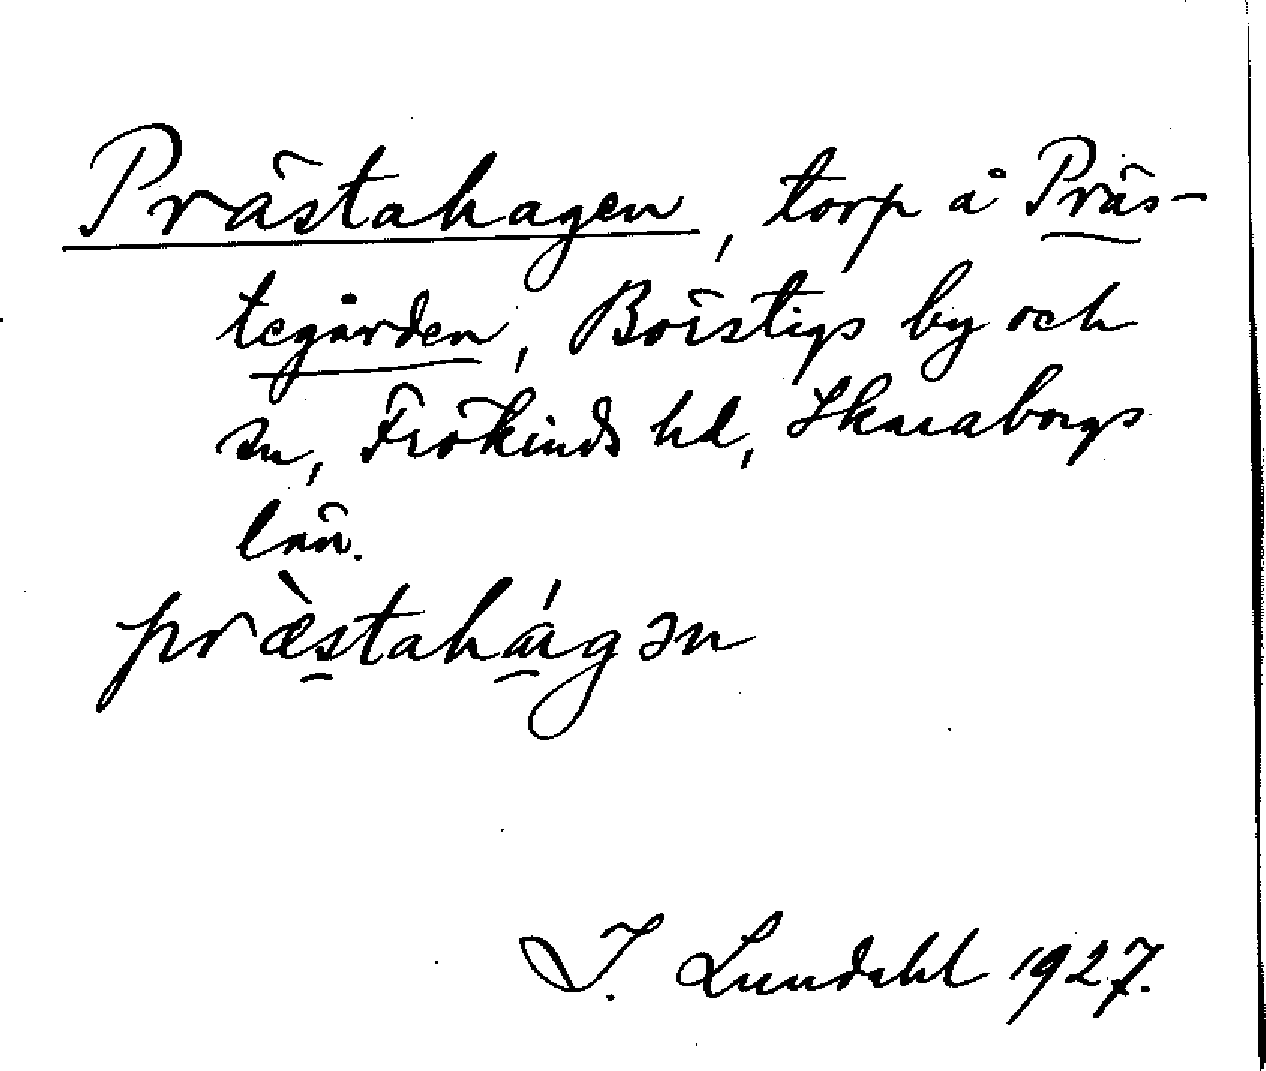 Prästahagen, torp å Präs-
tegården, Börstigs by och
sn, Frökinds hd, Skaraborgs
län.
præ̀stahágən
I. Lundahl 1927.